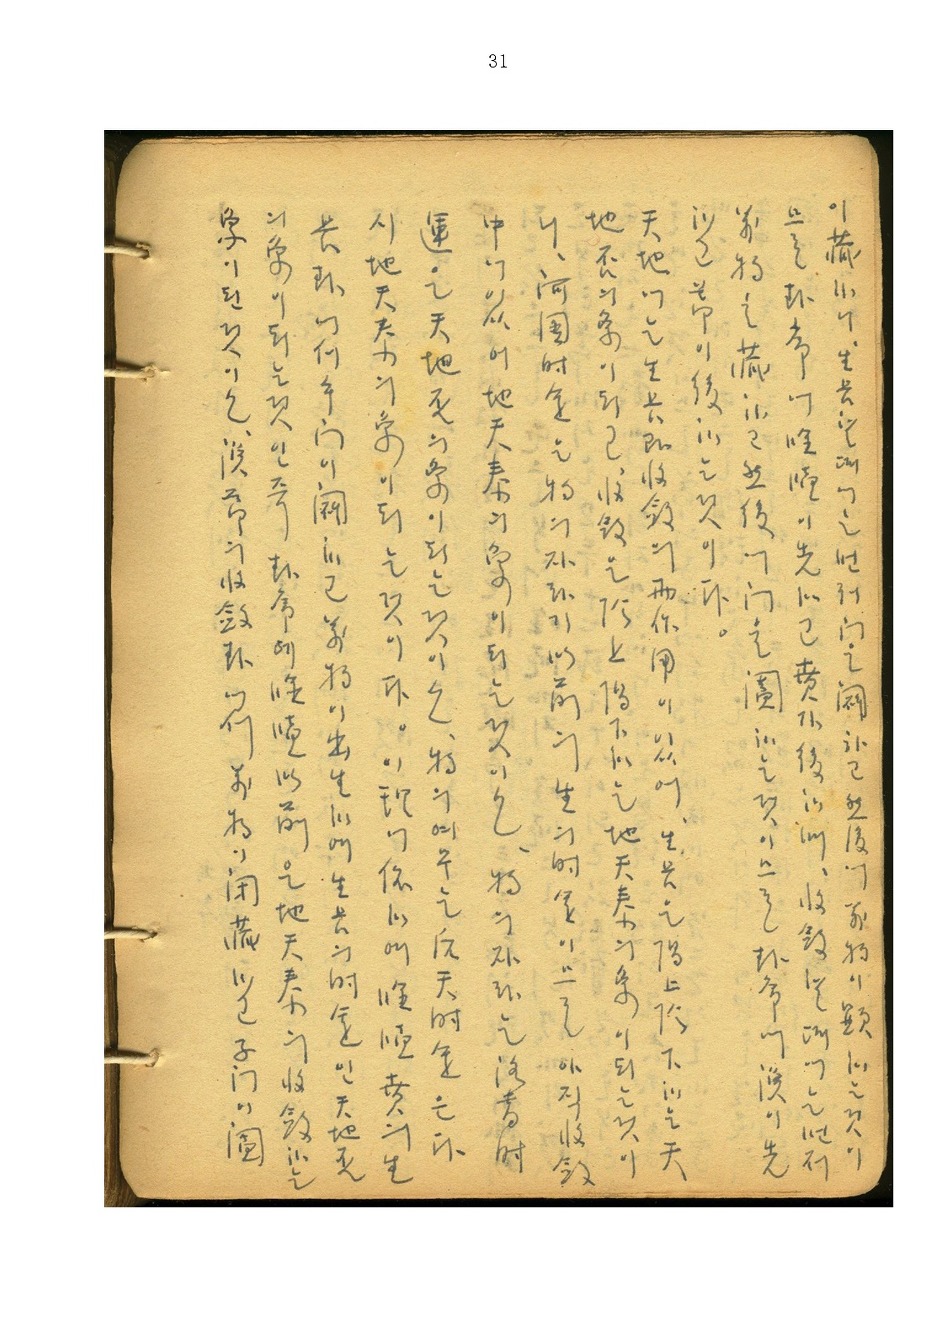 31
이 藏하니, 生長할 때에는 먼저 門을 闢하고 然後에 萬物이 顯하는 것이
으로 卦序에 噬嗑이 先하고 賁가 後하며, 收斂할 때에는 먼저
萬物을 藏하고 然後에 門을 闔하는 것이므로 卦序에 渙이 先
하고 節이 後하는 것이다。
天地에는 生長과 收斂의 兩作用이 있어, 生長은 陽上陰下하는 天
地否의 象이 되고, 收斂은 陰上陽下하는 地天泰의 象이 되는 것이
니, 河圖時運는 物의 자라기 以前의 生의 時運이므로 아직 收斂
中에 있어 地天泰의 象이 되는 것이오, 物의 자라는 洛書時
運은 天地否의 象이 되는 것이오, 物의 여무는 后天時運은 다
시 地天泰의 象이 되는 것이다。이 理에 依하여 噬嗑 賁의 生
長卦에서 午門이 闢하고 萬物이 出生하며 生長의 時運인 天地否
의 象이 되는 것인즉 卦序에 噬嗑 以前은 地天泰의 收斂하는
象이 된 것이오, 渙節의 收斂卦에서 萬物이 閉藏하고 子門이 闔